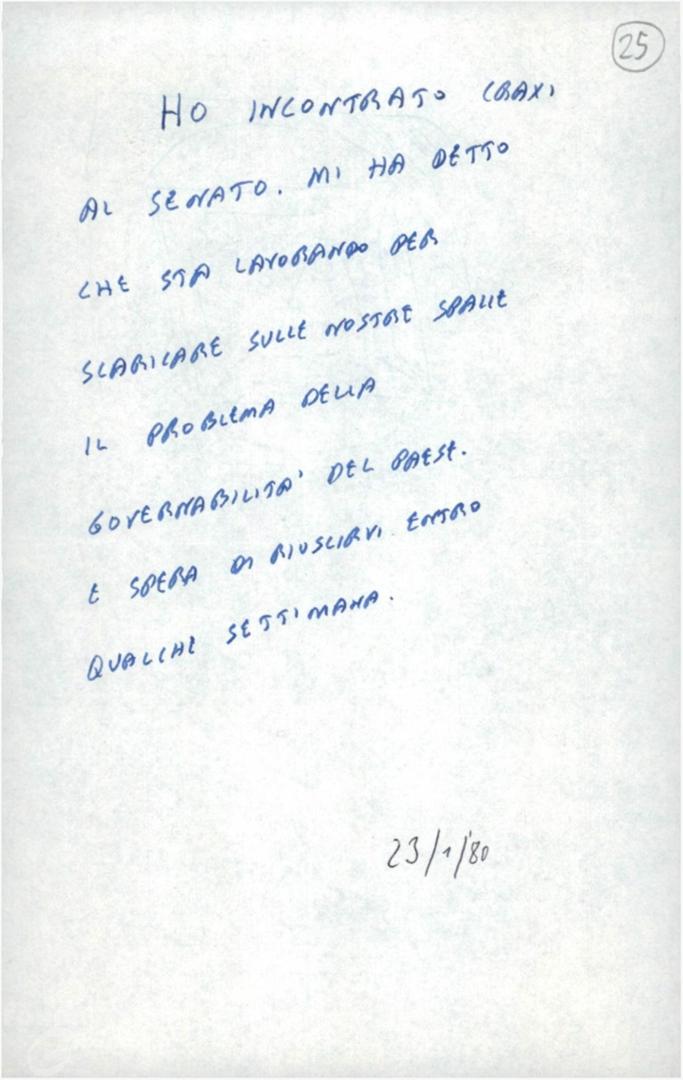 25
HO INCONTRATO CRAXI
AL SENATO. MI HA DETTO
CHE STA LAVORANDO PER
SCARICARE SULLE NOSTRE SPALLE
IL PROBLEMA DELLA
GOVERNABILITA' DEL PAESE.
E SPERA DI RIUSCIRVI ENTRO
QUALCHE SETTIMANA.
23/1/'80